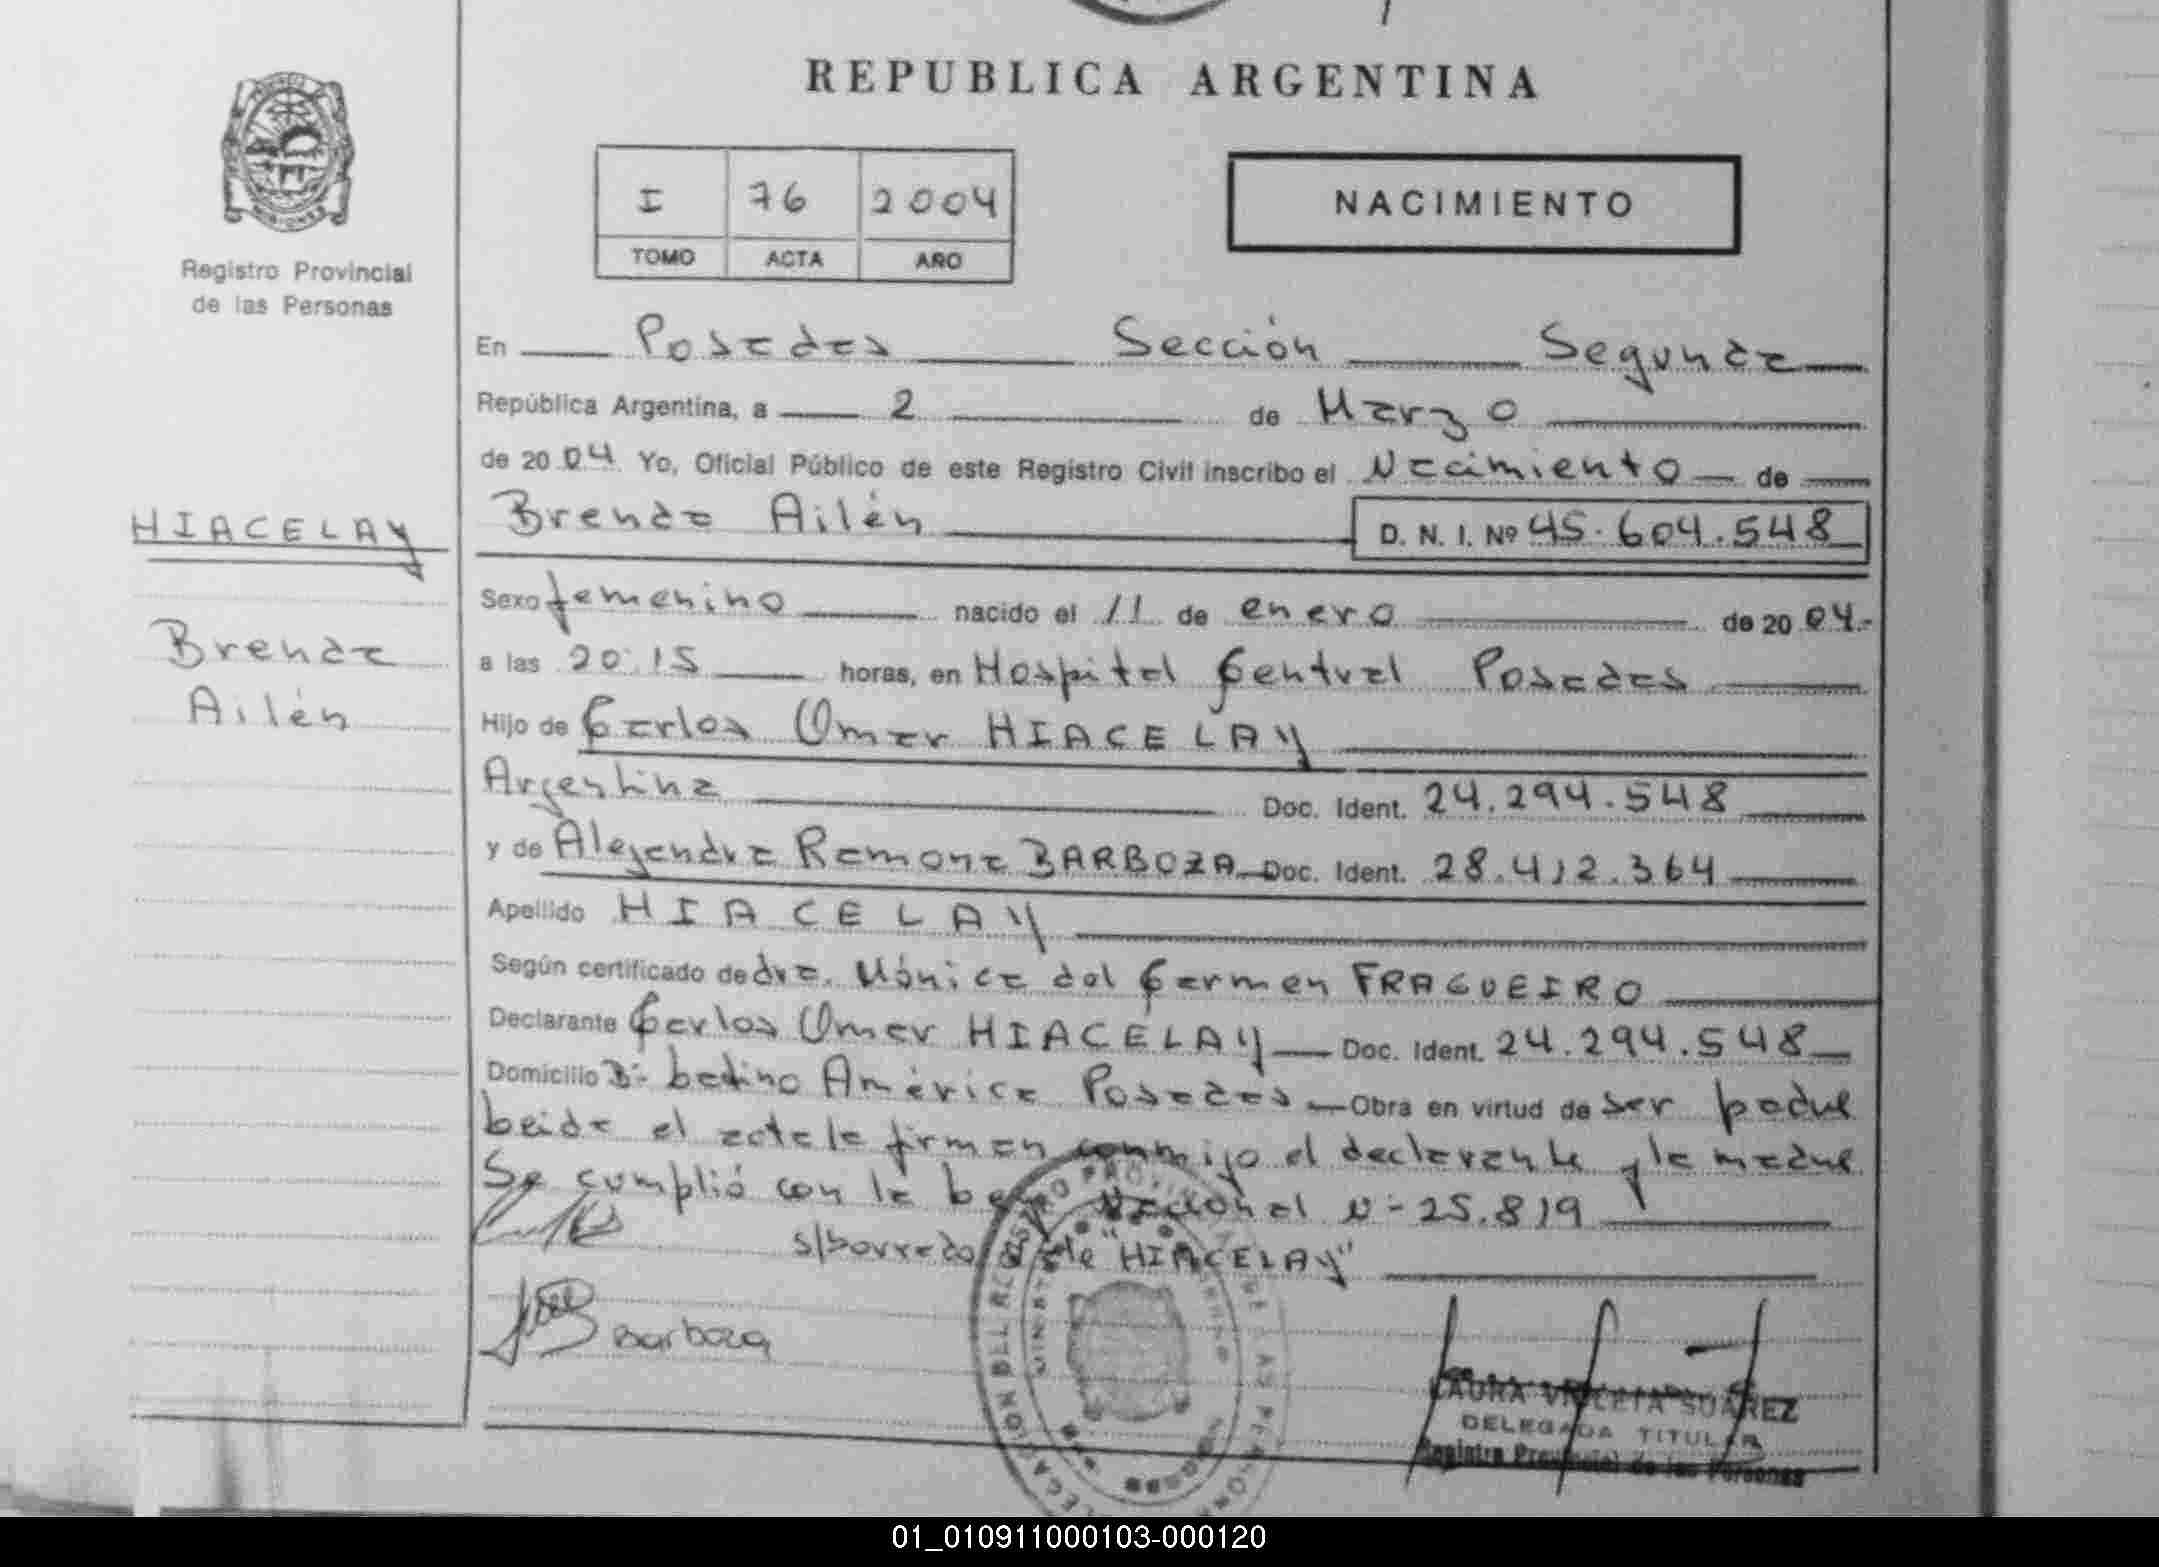 REPUBLICA ARGENTINA
I 76 2004
TOMO ACTA AÑO
NACIMIENTO
Registro Provincial
de las Personas
En Posadas Sección Segunda
República Argentina, a 2 de Marzo
de 2004 Yo, Oficial Público de este Registro Civil inscribo el Nacimiento de
HIACELAY
Brenda Ailén D. N. I. Nº 45.604.548
Sexo femenino nacido el 11 de enero de 2004.-
Brenda
Ailén
a las 20:15 horas, en Hospital Central Posadas
Hijo de Carlos Omar HIACELAY
Argentina Doc. Ident. 24.294.548
y de Alejandra Ramona BARBOZA Doc. Ident. 28.412.364
Apellido HIACELAY
Según certificado de dra. Mónica del Carmen FRAGUEIRO
Declarante Carlos Omar HIACELAY Doc. Ident. 24.294.548
Domicilio Bº Latino América Posadas Obra en virtud de ser padre
leida el acta la firman conmigo el declarante y la madre
Se cumplió con la Ley Nacional Nº 25.819
s/borrado vale "HIACELAY"
Barboza
LAURA VIOLETA SUAREZ
DELEGADA TITULAR
Registro Provincial de las Personas
01_010911000103-000120